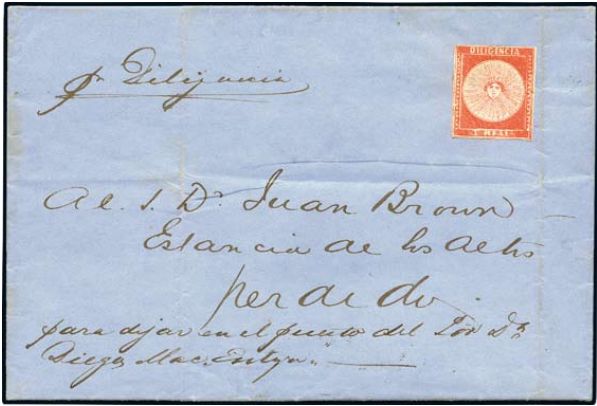 pr Diligencia
DILIGENCIA
1 REAL
Al. S. Dn. Juan Brown
Estancia de los Altos
perdido.
para dejar en el puesto del Sor Dn.
Diego Mac.